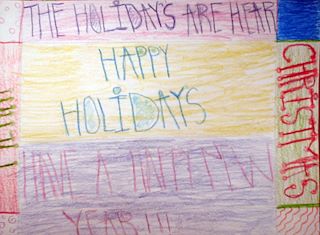 THE HOLIDAY'S ARE HEAR
HAPPY
HOLIDAYS
HAVE A HAPPY NEW
YEAR!!!
MERRY
CHRISTMAS